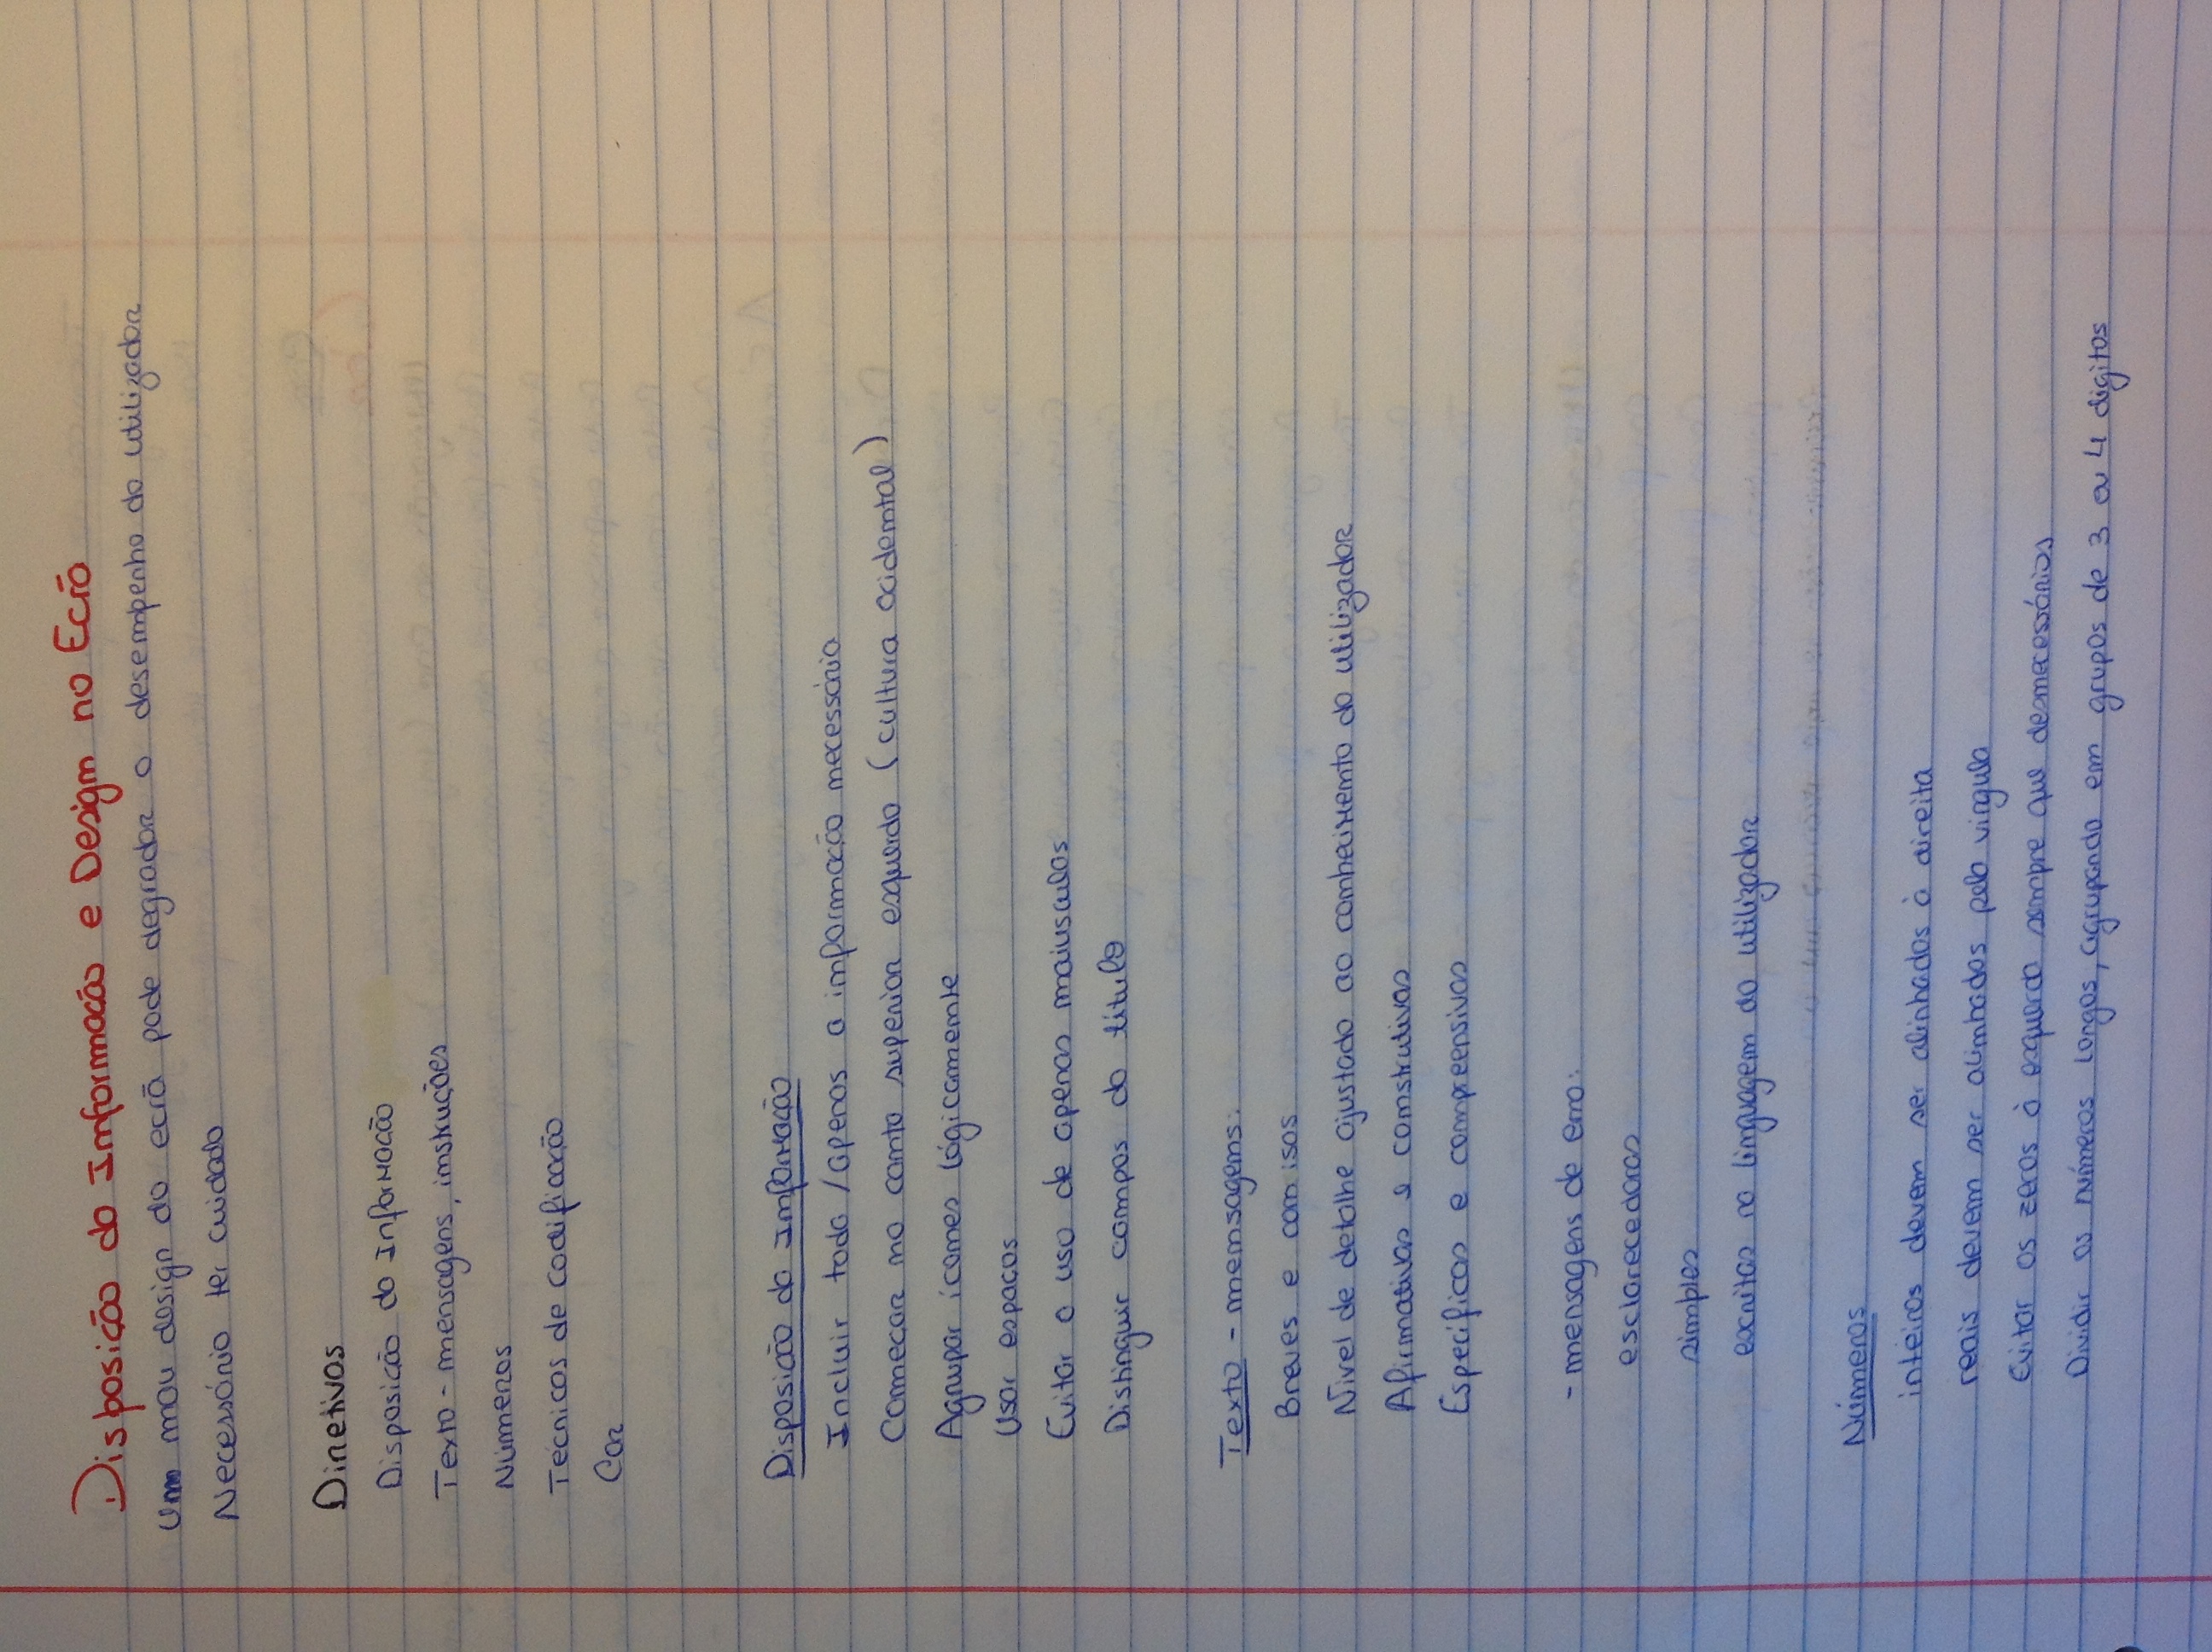 Disposição da Informação e Design no Ecrã
Um mau design do ecrã pode degradar o desempenho do utilizador
Necessário ter cuidado
Diretivas
Disposição da Informação
Texto - mensagens, instruções
Números
Técnicas de codificação
Cor
Disposição da Informação
Incluir toda / apenas a informação necessária
Começar no canto superior esquerdo (cultura ocidental)
Agrupar ícones lógicamente
Usar espaços
Evitar o uso de apenas maiusculas
Distinguir campos do título
Texto - mensagens:
Breves e concisas
Nível de detalhe ajustado ao conhecimento do utilizador
Afirmativas e construtivas
Específicas e compreensivas
- mensagens de erro:
esclarecedoras
simples
escritas na linguagem do utilizador
Números
inteiros devem ser alinhados à direita
reais devem ser alinhados pela virgula
Evitar os zeros à esquerda sempre que desnecessários
Dividir os números longos, agrupando em grupos de 3 ou 4 digitos